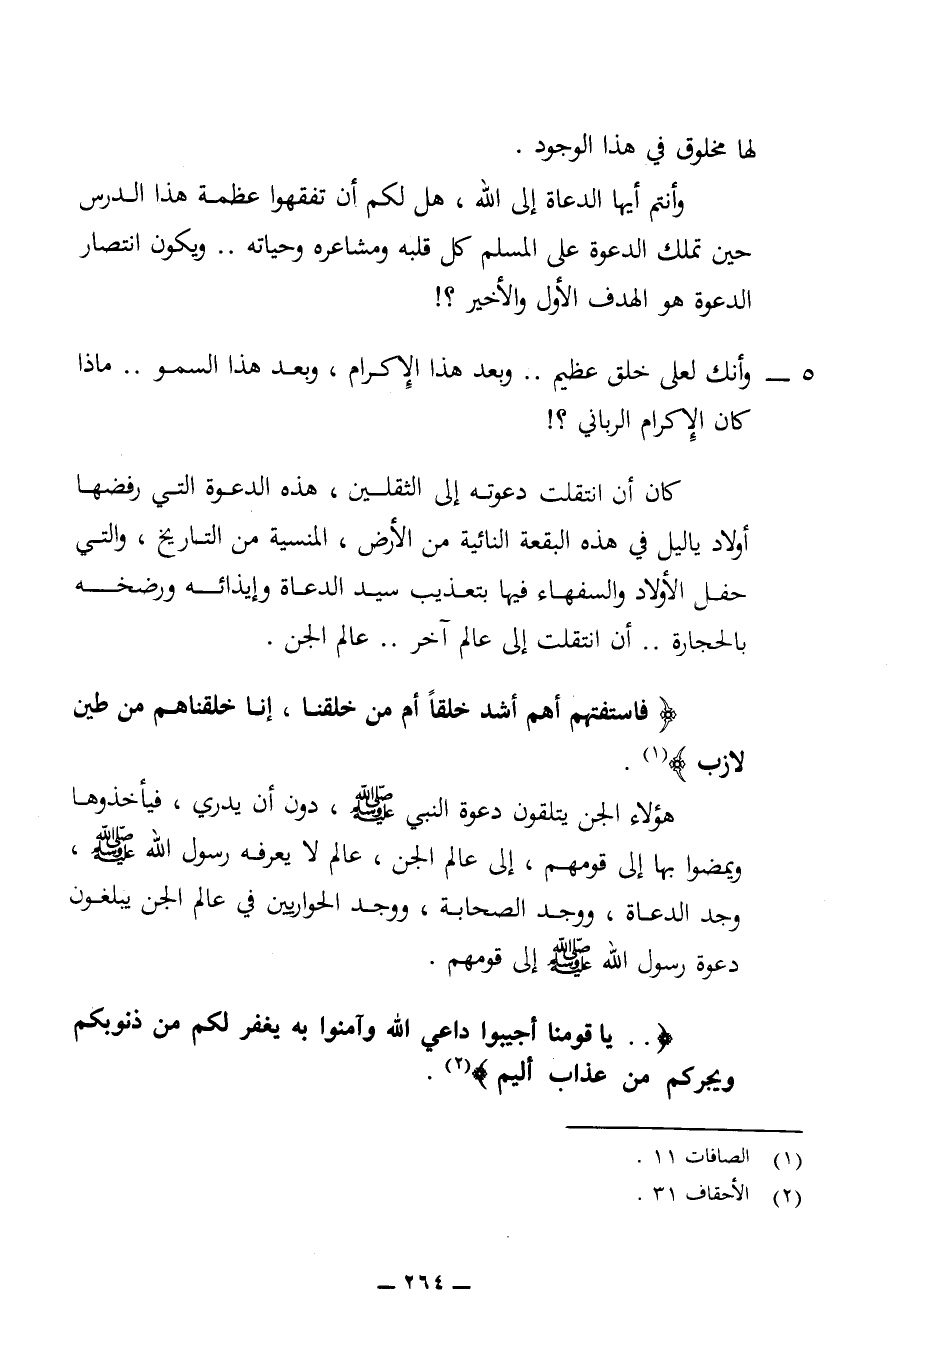 لها مخلوق في هذا الوجود .
وأنتم أيها الدعاة إلى الله ، هل لكم أن تفقهوا عظمة هذا الدرس
حين تملك الدعوة على المسلم كل قلبه ومشاعره وحياته .. ويكون انتصار
الدعوة هو الهدف الأول والأخير ؟!
٥ ــ وأنك لعلى خلق عظيم .. وبعد هذا الإكرام ، وبعد هذا السمو .. ماذا
كان الإكرام الرباني ؟!
كان أن انتقلت دعوته إلى الثقلين ، هذه الدعوة التي رفضها
أولاد ياليل في هذه البقعة النائية من الأرض ، المنسية من التاريخ ، والتي
حفل الأولاد والسفهاء فيها بتعذيب سيد الدعاة وإيذائه ورضخه
بالحجارة .. أن انتقلت إلى عالم آخر .. عالم الجن .
﴿ فاستفتهم أهم أشد خلقاً أم من خلقنا ، إنا خلقناهم من طين
لازب ﴾(١) .
هؤلاء الجن يتلقون دعوة النبي ﷺ ، دون أن يدري ، فيأخذوها
ويمضوا بها إلى قومهم ، إلى عالم الجن ، عالم لا يعرفه رسول الله ﷺ ،
وجد الدعاة ، ووجد الصحابة ، ووجد الحواريين في عالم الجن يبلغون
دعوة رسول الله ﷺ إلى قومهم .
﴿ .. يا قومنا أجيبوا داعي الله وآمنوا به يغفر لكم من ذنوبكم
ويجركم من عذاب أليم ﴾(٢) .
(١) الصافات ١١ .
(٢) الأحقاف ٣١ .
ــ ٢٦٤ ــ